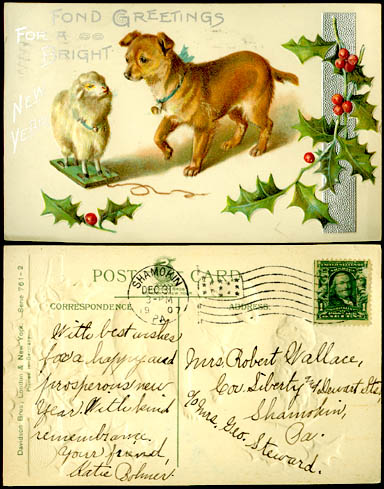 FOND GREETINGS
FOR A
BRIGHT
NEW
YEAR
POST CARD
SHAMOKIN
DEC 31
3-PM
1907
PA.
CORRESPONDENCE.
ADDRESS.
With best wishes
for a happy and
prosperous new
year. With kind
remembrance.
Your friend,
Katie Bohner
Mrs. Robert Wallace,
Cor Liberty and Dewart Sts,
Shamokin,
Pa.
c/o Mrs. Geo. Steward.
Davidson Bros., London & New York. Serie 761-2